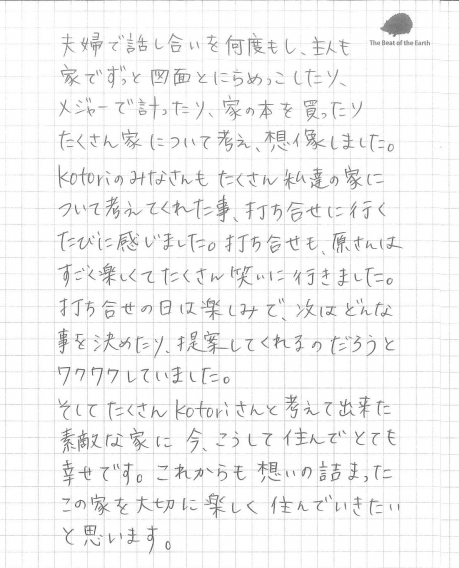 The Beat of the Earth
夫婦で話し合いを何度もし、主人も
家でずっと図面とにらめっこしたり、
メジャーで計ったり、家の本を買ったり
たくさん家について考え、想像しました。
kotoriのみなさんもたくさん私達の家に
ついて考えてくれた事、打ち合せに行く
たびに感じました。打ち合せも、原さんは
すごく楽しくてたくさん笑いに行きました。
打ち合せの日は楽しみで、次はどんな
事を決めたり、提案してくれるのだろうと
ワクワクしていました。
そしてたくさんkotoriさんと考えて出来た
素敵な家に今、こうして住んでとても
幸せです。これからも想いの詰まった
この家を大切に楽しく住んでいきたい
と思います。